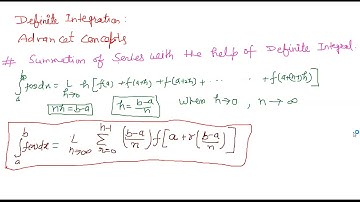 Definite Integration:
Advancet Concepts
# Summation of Series with the help of Definite Integral.
∫_a^b f(x)dx = L_{h→0} h[f(a) + f(a+h) + f(a+2h) + ...... + f(a+(n-1)h)]
nh = b-a h = b-a/n when h→0, n→∞
∫_a^b f(x)dx = L_{n→∞} Σ_{r=0}^{n-1} (b-a/n) f[a + r(b-a/n)]